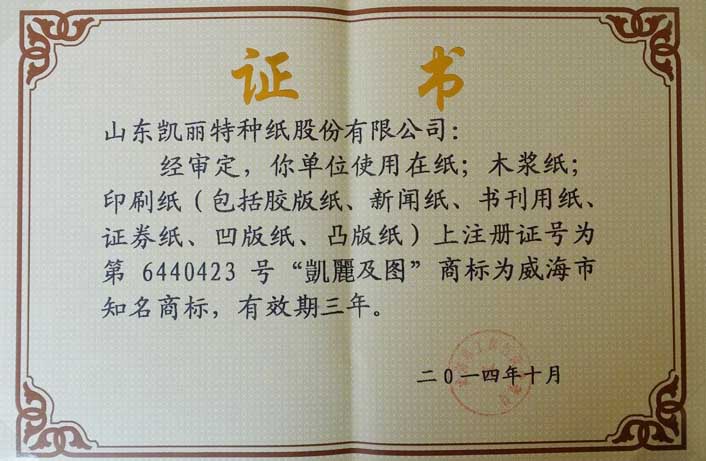 证 书
山东凯丽特种纸股份有限公司：
经审定，你单位使用在纸；木浆纸；
印刷纸（包括胶版纸、新闻纸、书刊用纸、
证券纸、凹版纸、凸版纸）上注册证号为
第 6440423 号“凱麗及图”商标为威海市
知名商标，有效期三年。
二0一四年十月